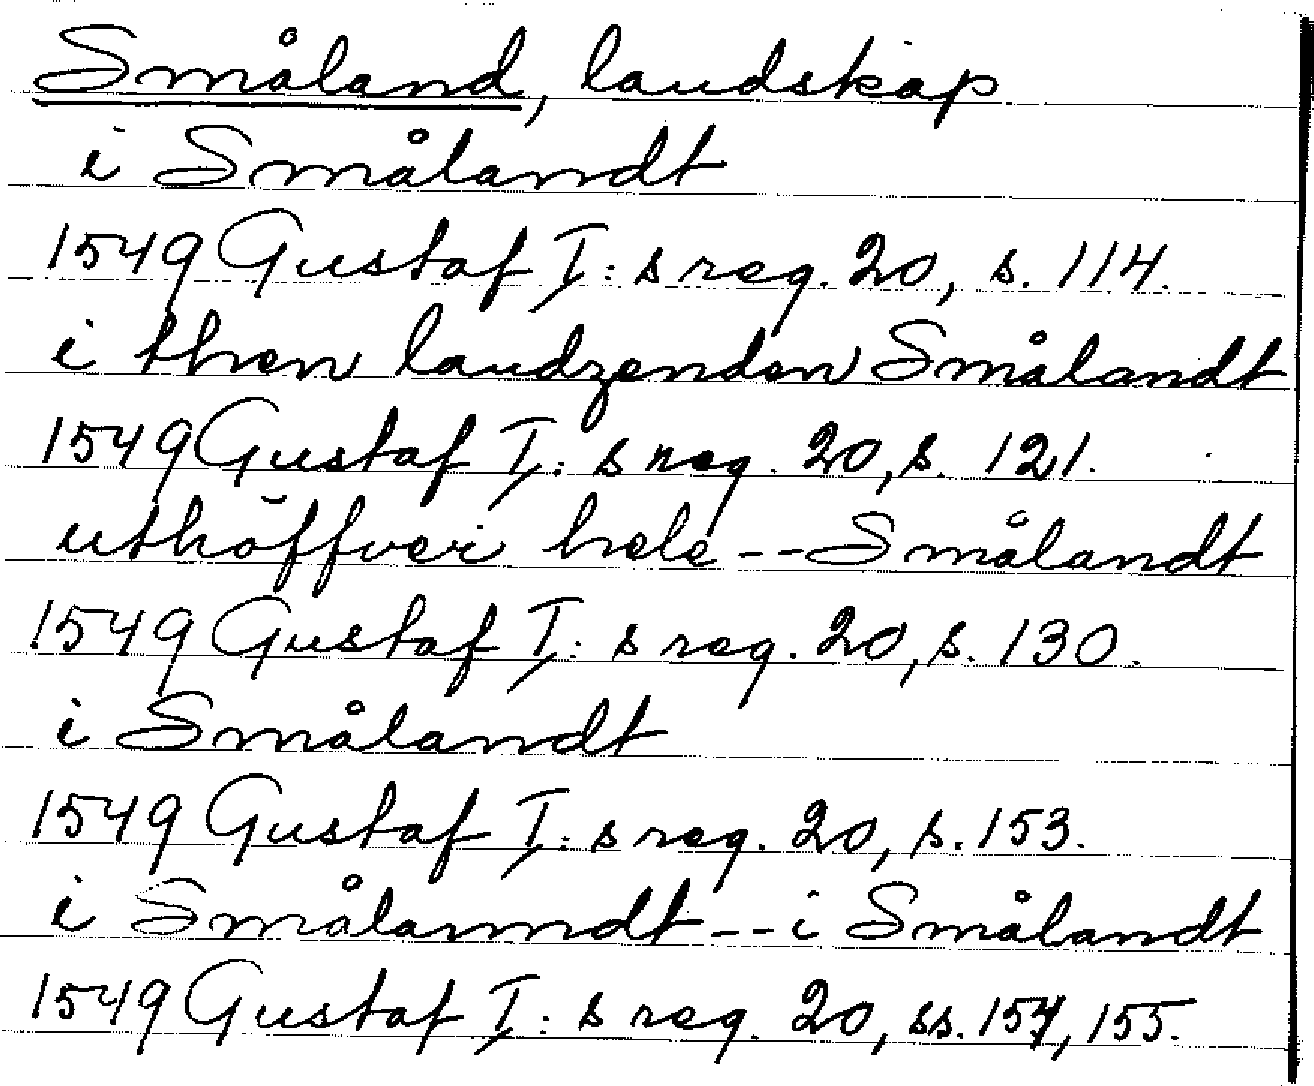 Småland, landskap
i Smålandt
1549 Gustaf I:s reg. 20, s. 114.
i then landzenden Smålandt
1549 Gustaf I:s reg. 20, s. 121.
uthöffver hele -- Smålandt
1549 Gustaf I:s reg. 20, s. 130.
i Smålandt
1549 Gustaf I:s reg. 20, s. 153.
i Smålanndt -- i Smålandt
1549 Gustaf I:s reg. 20, ss. 154, 155.